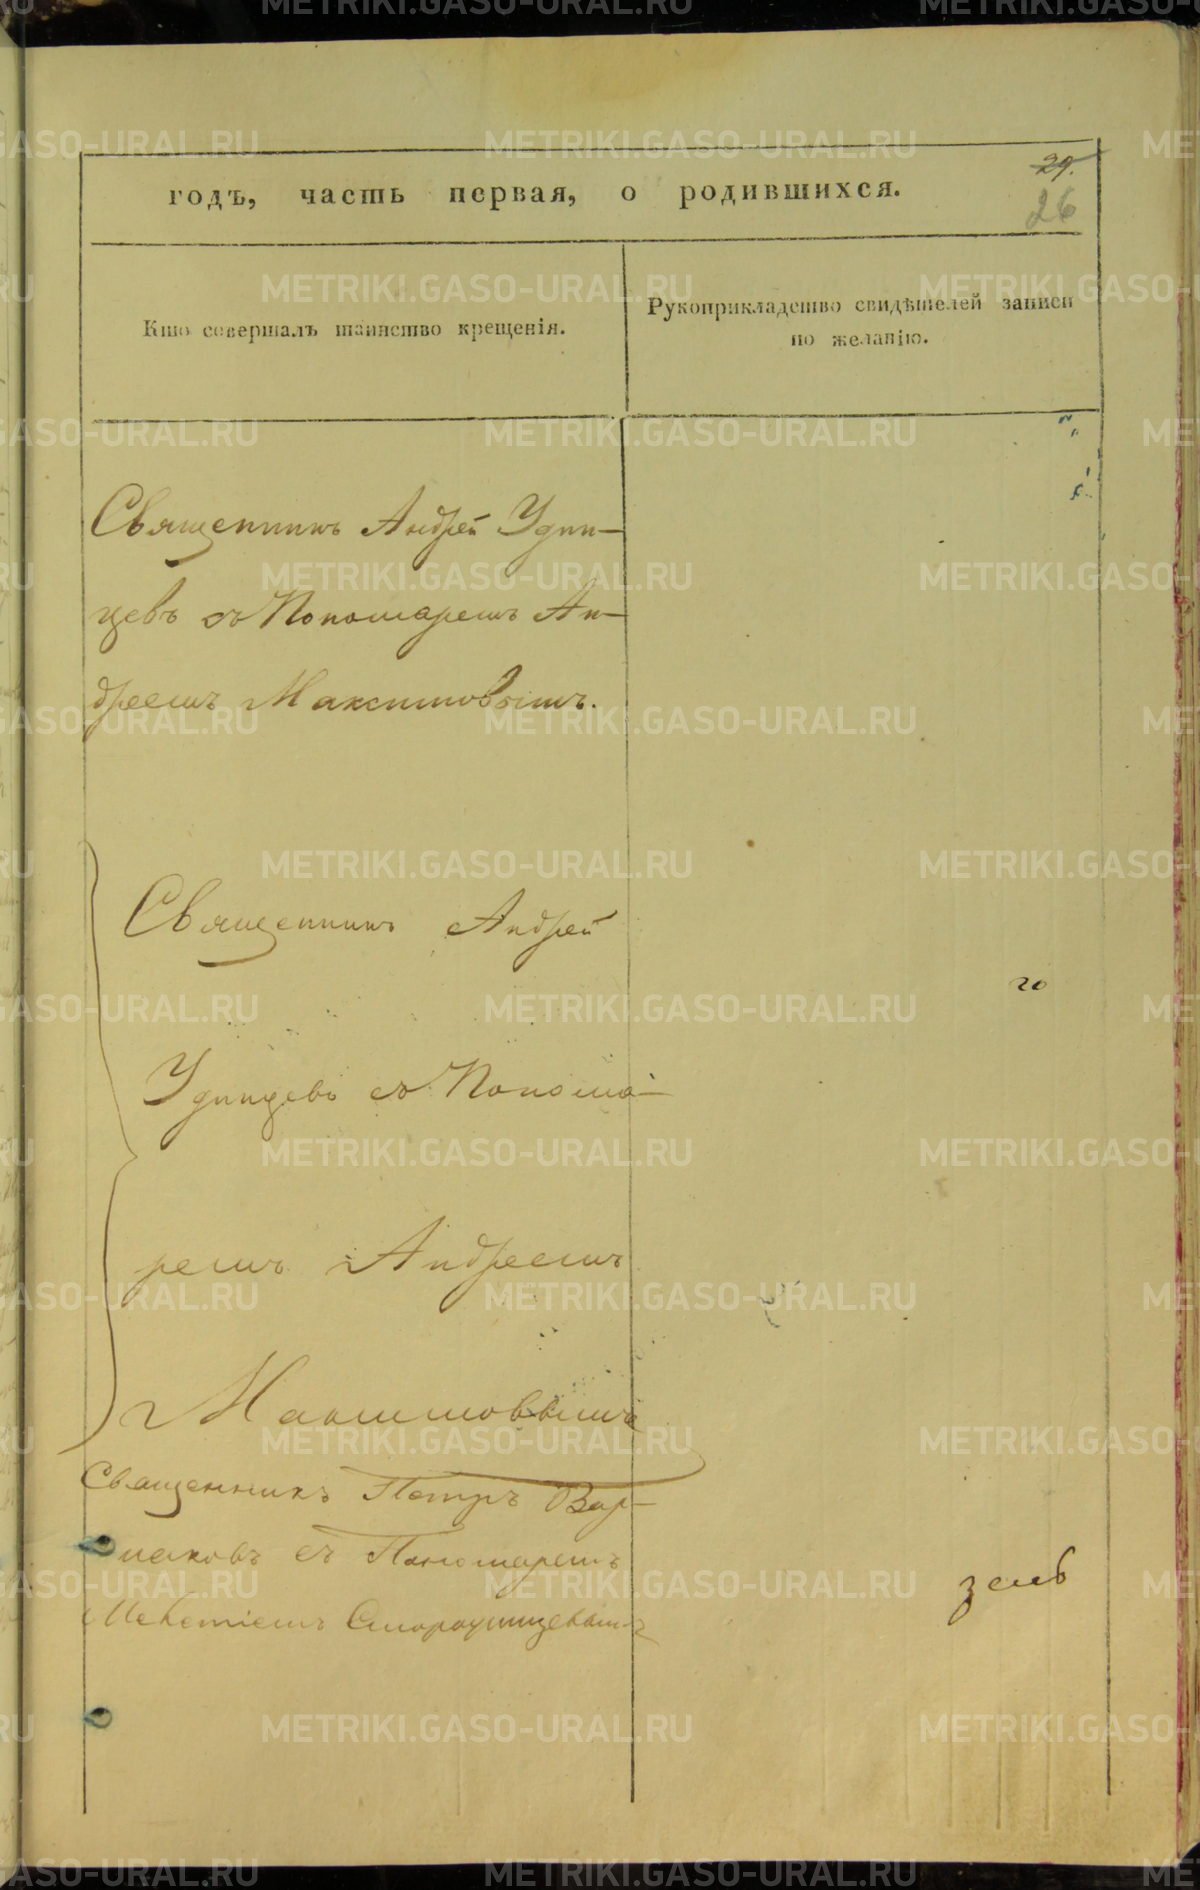 29.
годъ, часть первая, о родившихся.
26
Кто совершалъ таинство крещенія.
Рукоприкладство свидѣтелей записи
по желанію.
Священникъ Андрей Удин-
цевъ съ Пономаремъ Ан-
дреемъ Максимовымъ.
Священникъ Андрей
Удинцевъ съ Понома-
20
ремъ Андреемъ
Максимовымъ
Священникъ Петръ Вар-
наковъ съ Пономаремъ
земъ
METRIKI.GASO-URAL.RU